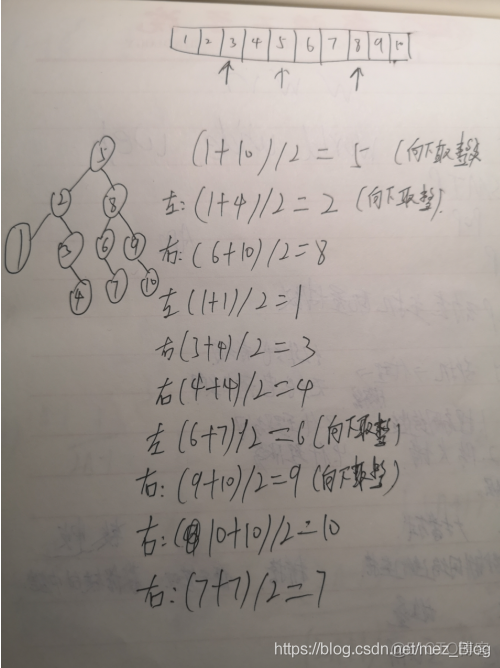 1 2 3 4 5 6 7 8 9 10
5
2 8
1 3 6 9
4 7 10
(1+10)/2=5 (向下取整)
左:(1+4)/2=2 (向下取整)
右:(6+10)/2=8
左(1+1)/2=1
右(3+4)/2=3
右(4+4)/2=4
左(6+7)/2=6(向下取整)
右:(9+10)/2=9(向下取整)
右:(10+10)/2=10
右:(7+7)/2=7
https://blog.csdn.net/mez_Blog